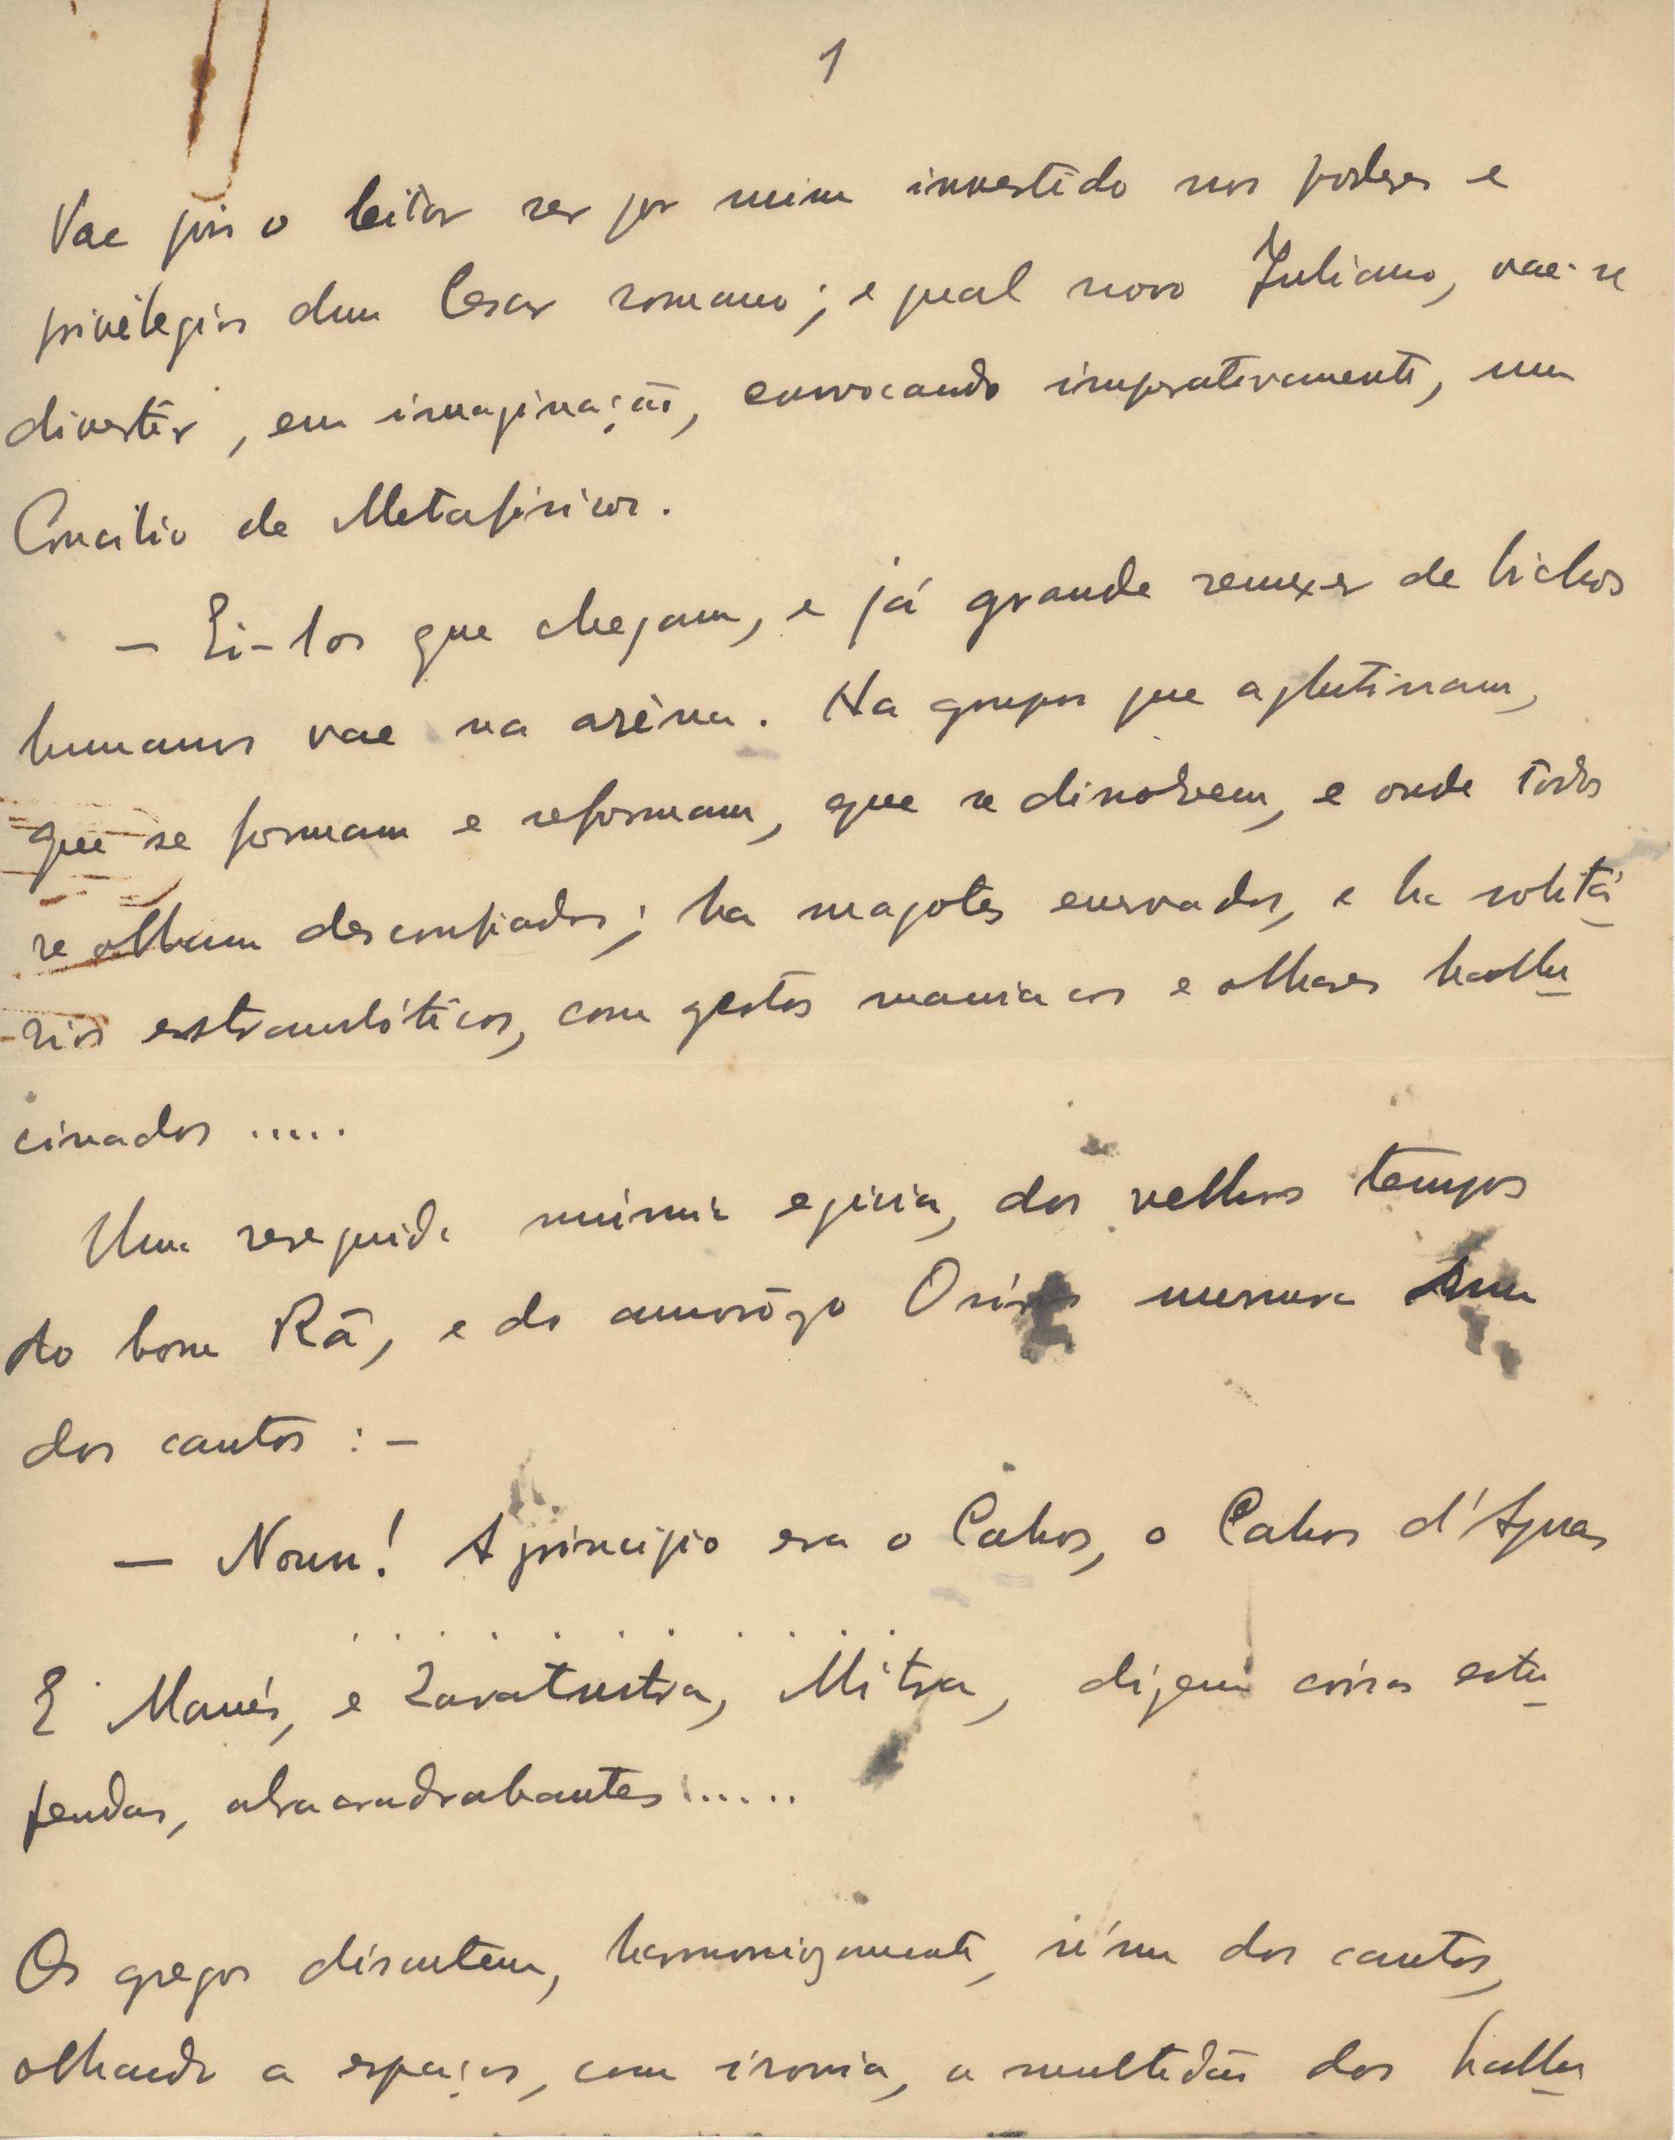 1
Vae pois o leitor ser por mim investido nos poderes e
privilegios dum Cesar romano; e qual novo Juliano, vae-se
divertir, em imaginação, convocando imperativamente, um
Concilio de Metafisicos.
— Ei-los que chegam, e já grande remexer de bichos
humanos vae na aréna. Ha grupos que aglutinam,
que se formam e reformam, que se dissolvem, e onde todos
se olham desconfiados; ha magotes enervados, e ha solitá
rios estrambóticos, com gestos maniacos e olhares hallu
cinados .....
Uma resequida múmia egicia, dos velhos tempos
do bom Rã, e do amorôzo Osíris murmura num
dos cantos : —
— Noun! A principio era o Cahos, o Cahos d'Aguas
. . . . . . . . . .
E Manés, e Zaratustra, Mitra, dizem coisas estu
pendas, abracadrabantes ......
Os gregos discutem, harmoniozamente, n'um dos cantos,
olhando a espaços, com ironia, a multidão dos hallu